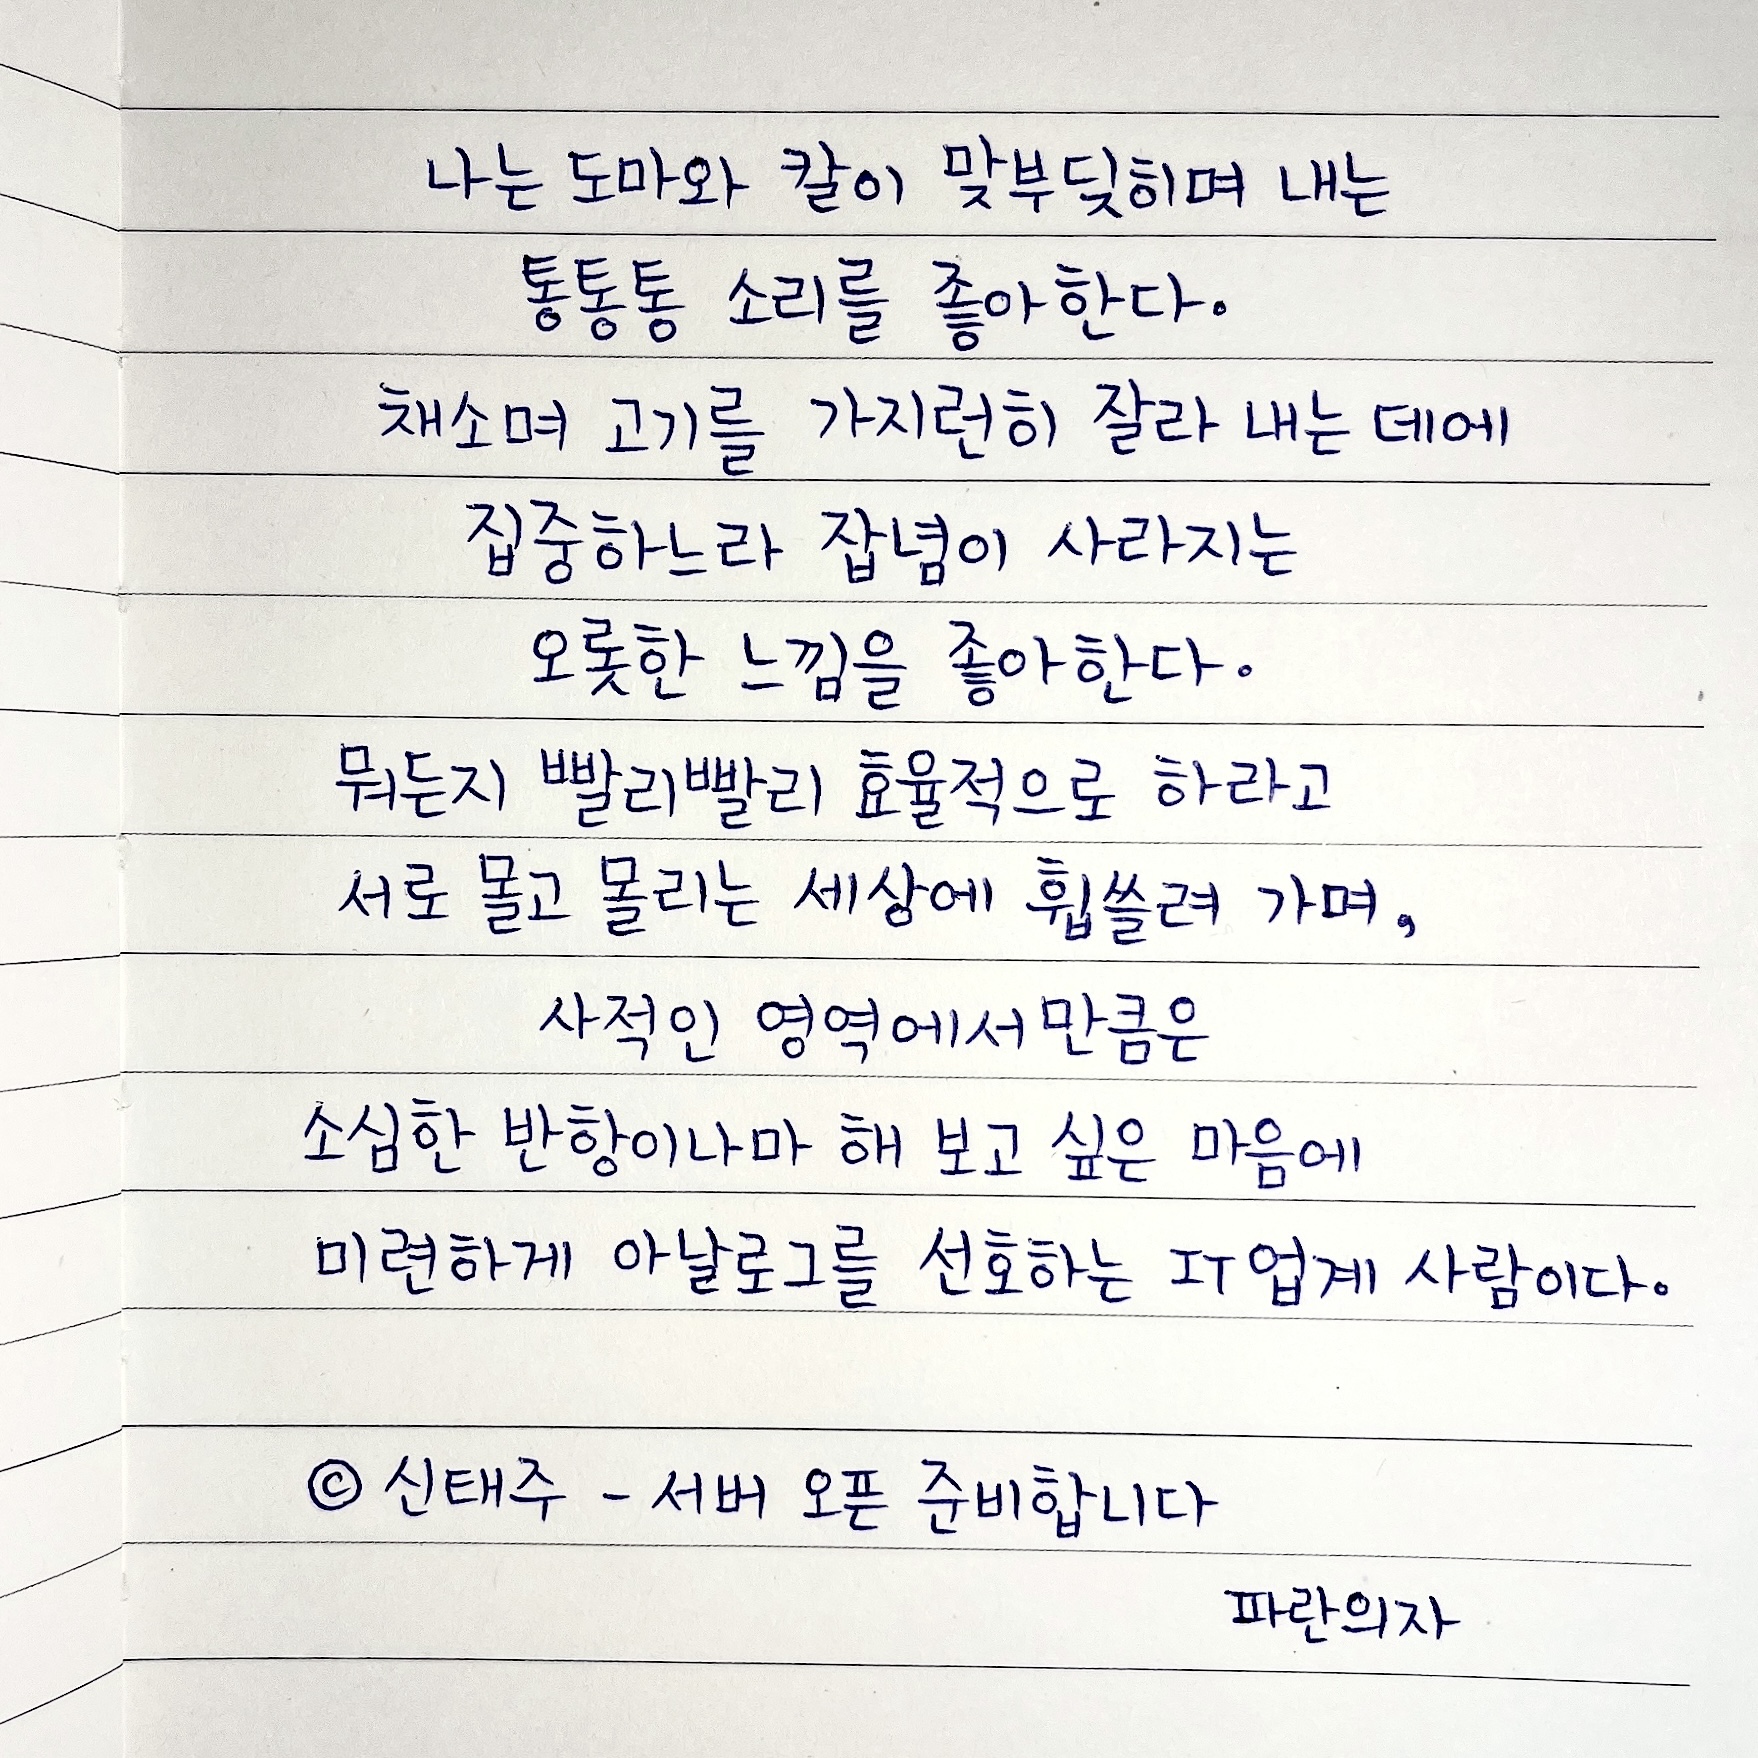 나는 도마와 칼이 맞부딪히며 내는
통통통 소리를 좋아한다.
채소며 고기를 가지런히 잘라 내는 데에
집중하느라 잡념이 사라지는
오롯한 느낌을 좋아한다.
뭐든지 빨리빨리 효율적으로 하라고
서로 몰고 몰리는 세상에 휩쓸려 가며,
사적인 영역에서만큼은
소심한 반항이나마 해 보고 싶은 마음에
미련하게 아날로그를 선호하는 IT업계 사람이다.
© 신태주 - 서버 오픈 준비합니다
파란의자